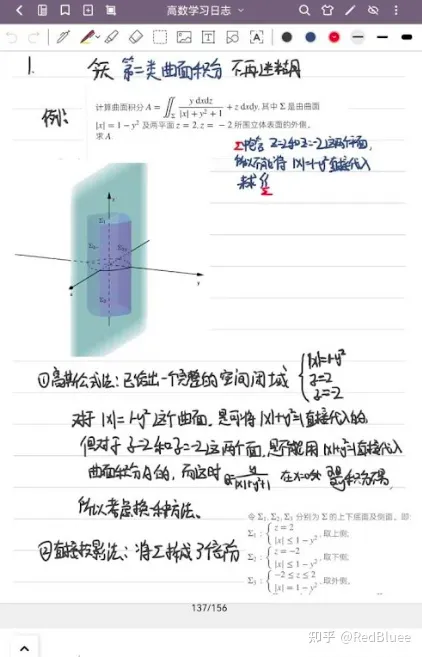 高数学习日志
1.
今天 第二类曲面积分 不再迷糊
例:
计算曲面积分 A = ∬_Σ y dxdz / (|x| + y² + 1) + z dxdy, 其中 Σ 是由曲面
|x| = 1 − y² 及两平面 z = 2, z = − 2 所围立体表面的外侧。
求 A
Σ中包含 z=2和z=-2这两个平面,
所以不能将 |x|=1-y² 直接代入
来求 ∬_Σ
z
Σ₁
Σ₃
x
y
①高斯公式法: 已给出一个完整的空间闭域 { |x|=1-y²
z=2
z=-2
对于 |x|=1-y² 这个曲面, 是可将 |x|+y²=1 直接代入的
但对于 z=2和z=-2这两个面, 是不能用 |x|+y²=1 直接代入
曲面积分A的, 而这时 y/(|x|+y²+1) 在x=0处
所以考虑换一种方法、
②直接投影法: 将Σ拆成了3个部分
令 Σ₁, Σ₂, Σ₃ 分别为 Σ 的上下底面及侧面, 即
Σ₁ : { z = 2
|x| ≤ 1 − y² , 取上侧;
Σ₂ : { z = −2
|x| ≤ 1 − y² , 取下侧;
Σ₃ : { −2 ≤ z ≤ 2
|x| = 1 − y² , 取外侧。
137/156
知乎 @RedBluee